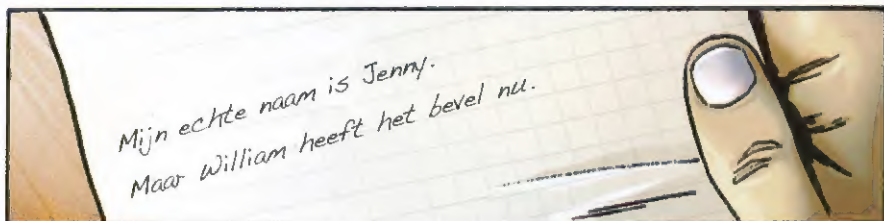 Mijn echte naam is Jenny.
Maar William heeft het bevel nu.